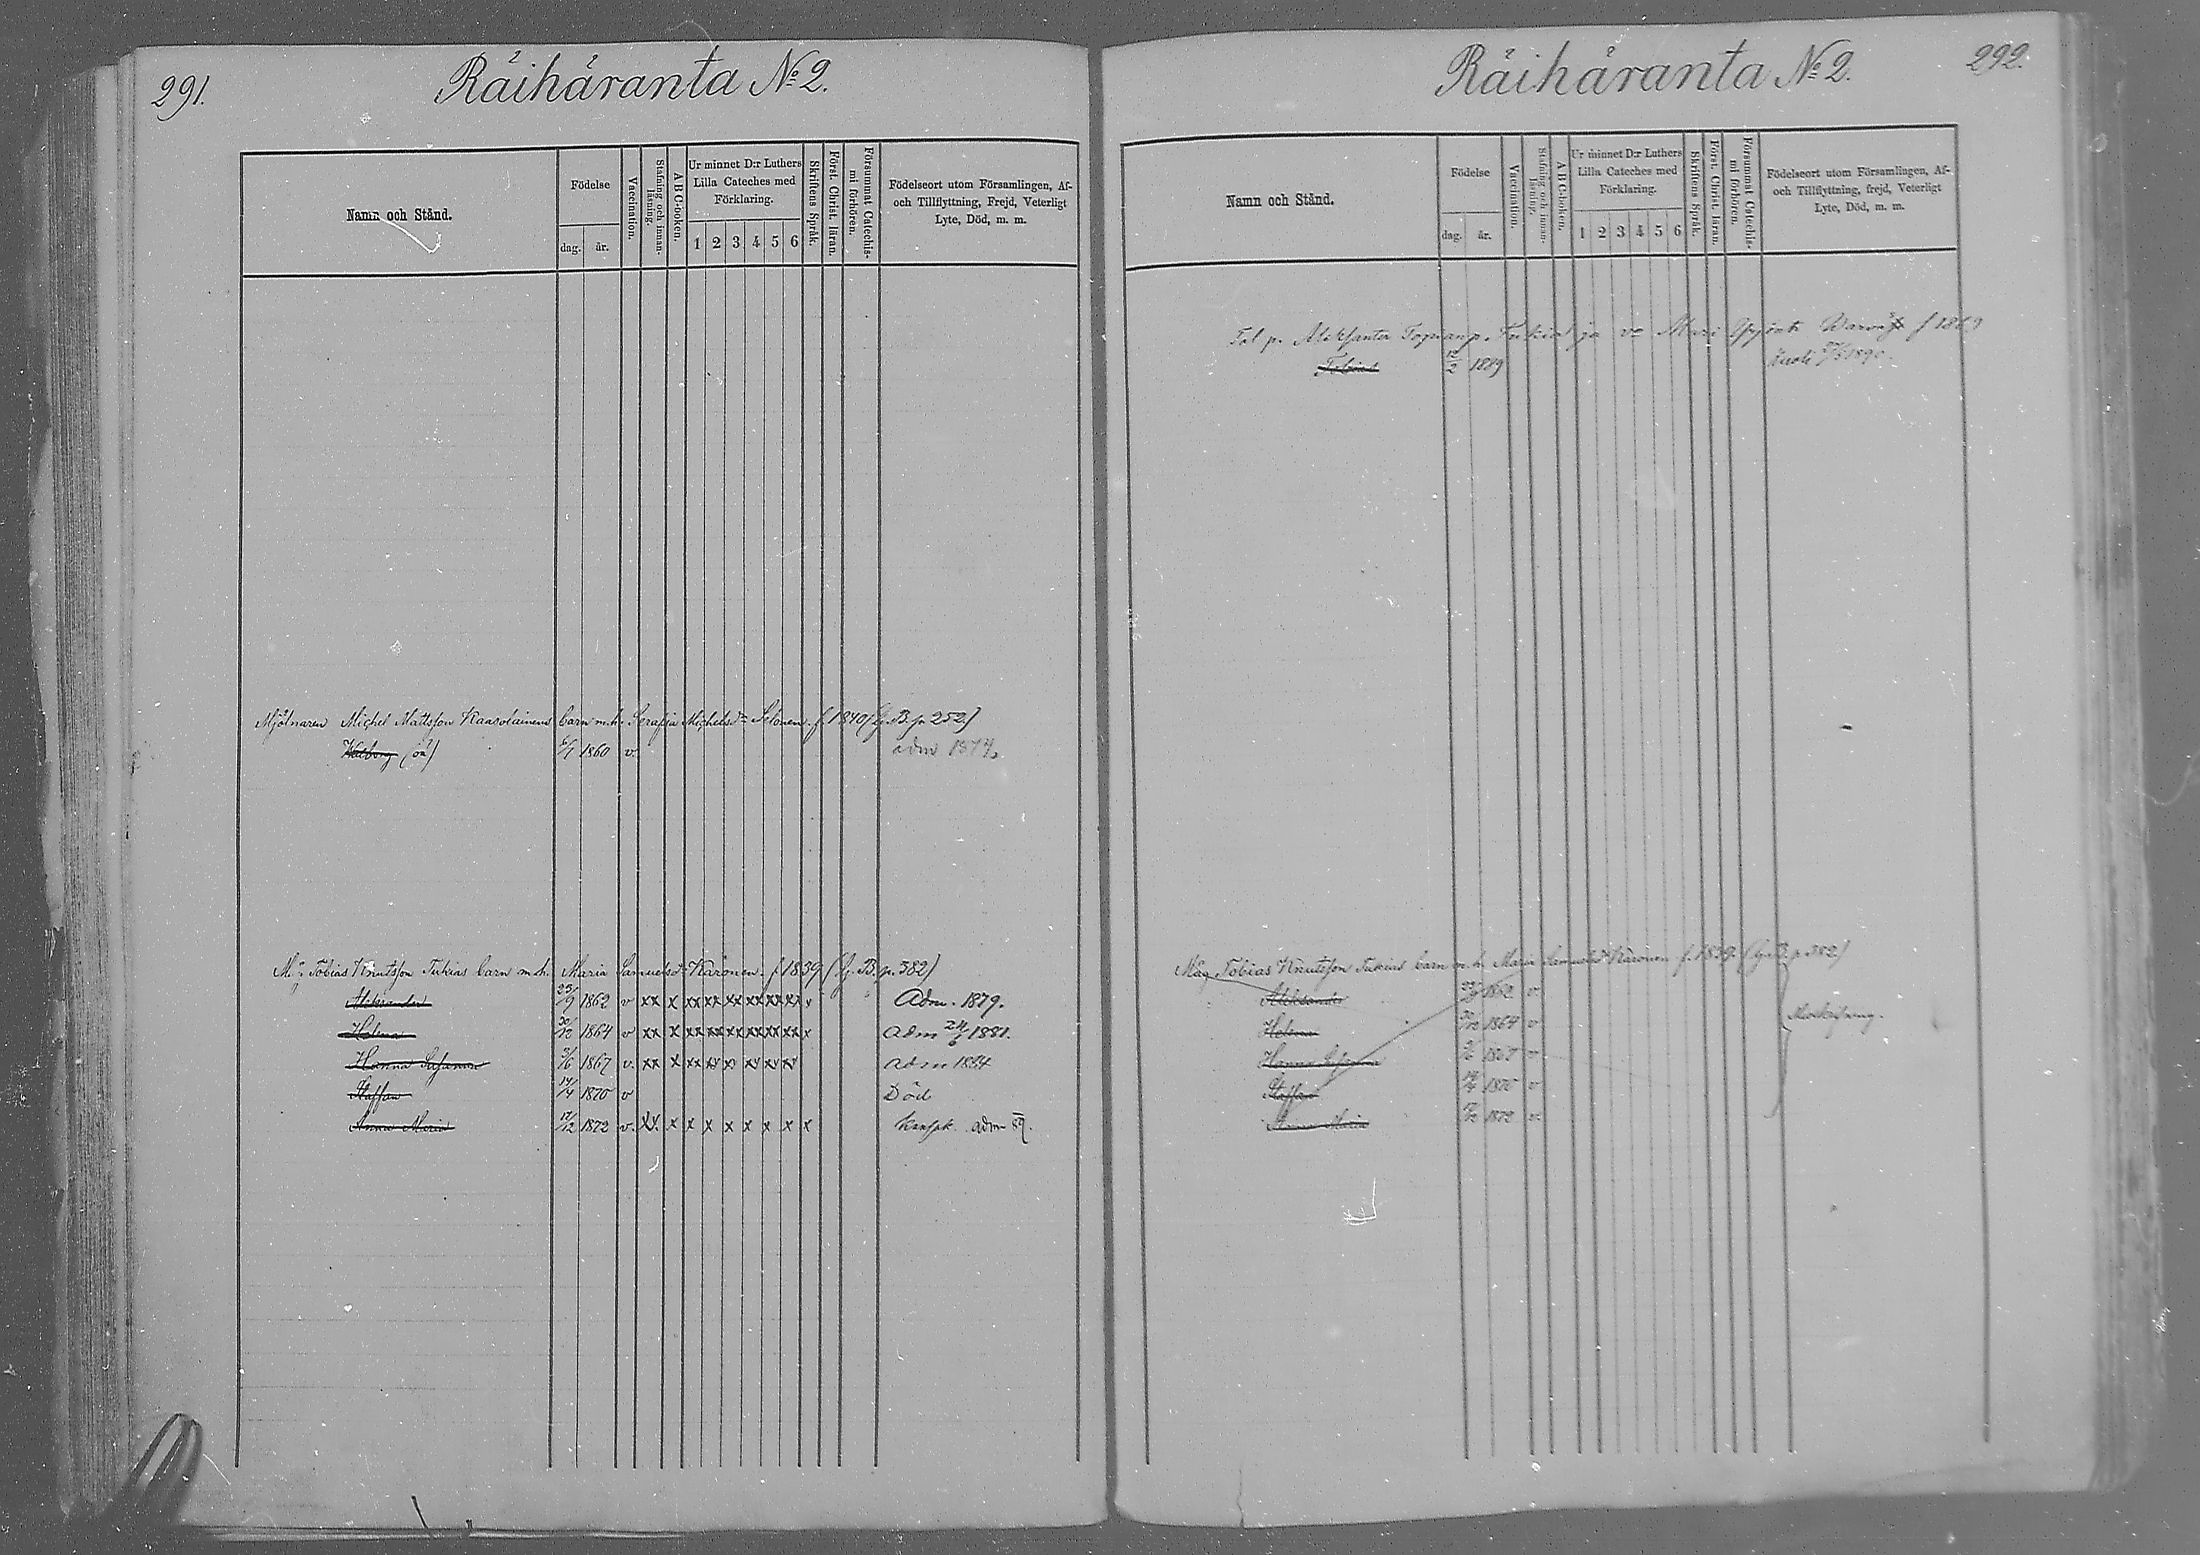 291.
Räihäranta No 2.
Namn och Stånd.
Födelse
dag. år.
Vaccination.
Stafning och innan-läsning.
ABC-boken.
Ur minnet D:r Luthers Lilla Cateches med Förklaring.
1 2 3 4 5 6
Skriftens Språk.
Först. Christ. läran.
Försummat Catechis-mi förhören.
Födelseort utom Församlingen, Af- och Tillflyttning, Frejd, Veterligt Lyte, Död, m. m.
Mjölnaren Michel Mattsson Kaasolainens barn m.h. Serafia Michelsdr Selonen f. 1840
Walborg (oä) 1860 v. adm 1874.
Tobias Knutsson Tukias barn m.h. Maria Samuelsdr Karonen f. 1839 (Lj. B. p. 382)
Aleksander 23/9 1862 v xx x xx xx xx xx xx xx x Adm. 1879.
Helena 30/12 1864 v xx x xx xx xx xx xx xx x adm 24/6 1881.
Hanna Susanna 3/6 1867 v. xx x xx xx xx xx xx xx adm 1884
Staffan 14/4 1870 v Död
Anna Maria 17/12 1872 v. xx x x x x x x x x adm 89.
Räihäranta No 2.
292.
Namn och Stånd.
Födelse
dag. år.
Vaccination.
Stafning och innan-läsning.
ABC-boken.
Ur minnet D:r Luthers Lilla Cateches med Förklaring.
1 2 3 4 5 6
Skriftens Språk.
Först. Christ. läran.
Försummat Catechis-mi förhören.
Födelseort utom Församlingen, Af- och Tillflyttning, frejd, Veterligt Lyte, Död, m. m.
Tal p. Aleksanter Topianp. Tukia ja vo Mari
Tobias 12/2 1889 kuoli 1890.
Måg Tobias Knutsson Tukias barn m.h. Maria Samuelsdr Karonen f. 1839. (Lj. B. p. 382)
Aleksander 23/9 1862 v.
Helena 30/12 1864 v
Hanna Susanna 3/6 1867 v.
Staffan 14/4 1870 v
Anna Maria 17/12 1872 v.